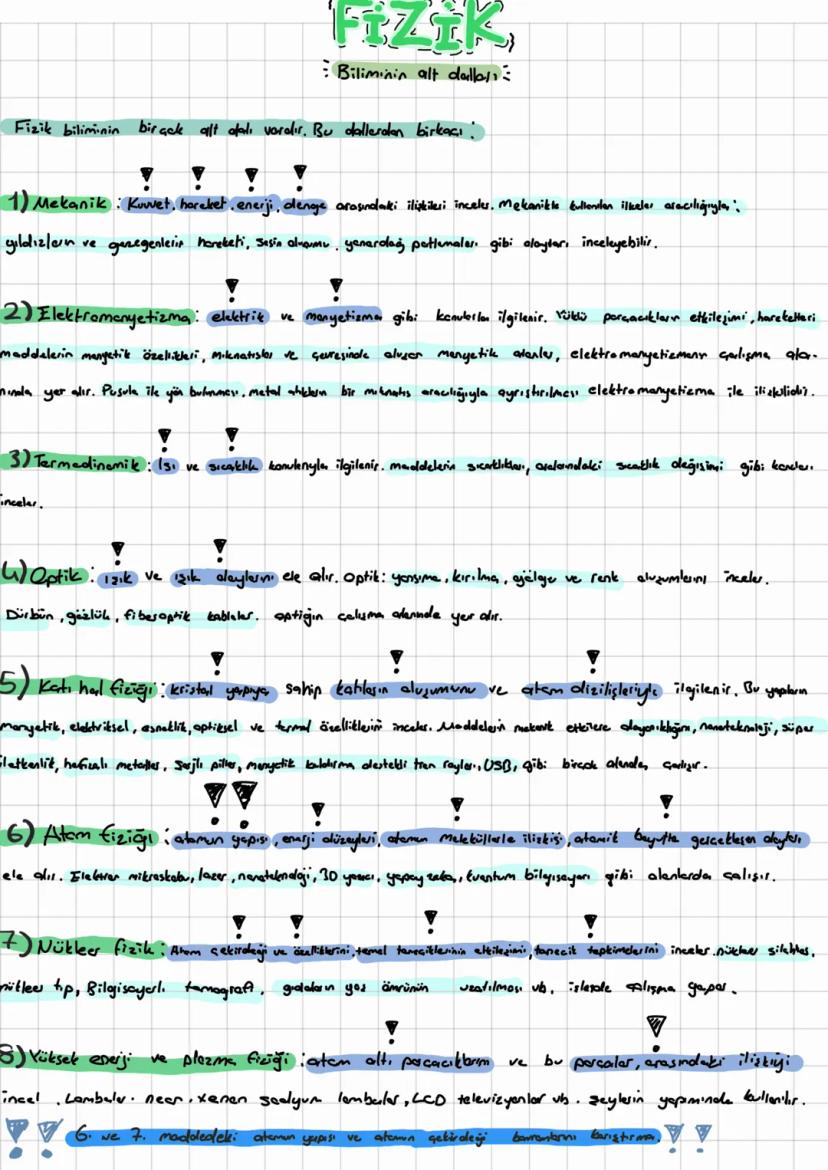 FİZİK
Biliminin alt dalları
Fizik biliminin birçok alt dalı vardır. Bu dallardan birkaçı:
1) Mekanik : Kuvvet, hareket, enerji, denge arasındaki ilişkileri inceler. Mekanikte kullanılan ilkeler aracılığıyla;
yıldızların ve gezegenlerin hareketi, sesin oluşumu, yanardağ patlamaları gibi olayları inceleyebilir.
2) Elektromanyetizma : elektrik ve manyetizma gibi konularla ilgilenir. Yüklü parçacıkların etkileşimi, hareketleri
maddelerin manyetik özellikleri, mıknatıslar ve çevresinde oluşan manyetik alanlar, elektromanyetizmanın çalışma ala-
nında yer alır. Pusula ile yön bulunması, metal atıkların bir mıknatıs aracılığıyla ayrıştırılması elektromanyetizma ile ilişkilidir.
3) Termodinamik : Isı ve sıcaklık konularıyla ilgilenir. maddelerin sıcaklıkları, aralarındaki sıcaklık değişimi gibi konuları
inceler.
4) Optik : ışık ve ışık olaylarını ele alır. Optik: yansıma, kırılma, gölge ve renk oluşumlarını inceler.
Dürbün, gözlük, fiberoptik kablolar. optiğin çalışma alanında yer alır.
5) Katı hal fiziği : kristal yapıya sahip katıların oluşumunu ve atom dizilişleriyle ilgilenir. Bu yapıların
manyetik, elektriksel, esneklik, optiksel ve termal özelliklerini inceler. Maddelerin mekanik etkilere dayanıklılığını, nanoteknoloji, süper
iletkenlik, hafızalı metaller, şarjlı piller, manyetik kaldırma destekli tren rayları, USB, gibi birçok alanda, çalışır.
6) Atom fiziği : atomun yapısı, enerji düzeyleri, atomun moleküllerle ilişkisi, atomik boyutta gerçekleşen olayları
ele alır. Elektron mikroskobu, lazer, nanoteknoloji, 3D yazıcı, yapay zeka, kuantum bilgisayarı gibi alanlarda çalışır.
7) Nükleer fizik : Atom çekirdeği ve özelliklerini, temel taneciklerinin etkileşimi, tanecik tepkimelerini inceler. nükleer silahlar,
nükleer tıp, Bilgisayarlı tomografi, gıdaların yaş ömrünün uzatılması vb. işlerde çalışma yapar.
8) Yüksek enerji ve plazma fiziği : atom altı parçacıkların ve bu parçalar arasındaki ilişkiyi
incel . Lambalar. neon, xenon sodyum lambalar, LCD televizyonlar vb. şeylerin yapımında kullanılır.
6. ve 7. maddedeki atomun yapısı ve atomun çekirdeği kavramlarını karıştırma.